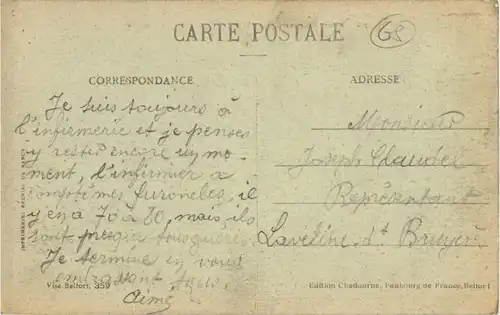 CARTE POSTALE
68
CORRESPONDANCE
ADRESSE
Je suis toujours à
l'infirmerie et je penses
y rester encore un mo-
ment, l'infirmier a
comptémes furoncles, il
y en a 70 à 80, mais ils
sont presque tous guéris.
Je termine en vous
embrassant tous.
Aimé
Monsieur
Joseph Claudel
Représentant
Laveline dt Bruyères
Visé Belfort, 359
Edition Chadourne, Faubourg de France, Belfort
IMPRIMERIES REUNIES DE NANCY